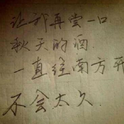 让我再尝一口
秋天的酒
一直往南方开
不会太久